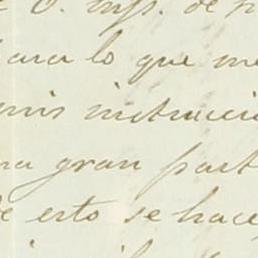 de
para lo que me
mis instruccio
na gran part
de esto se hace